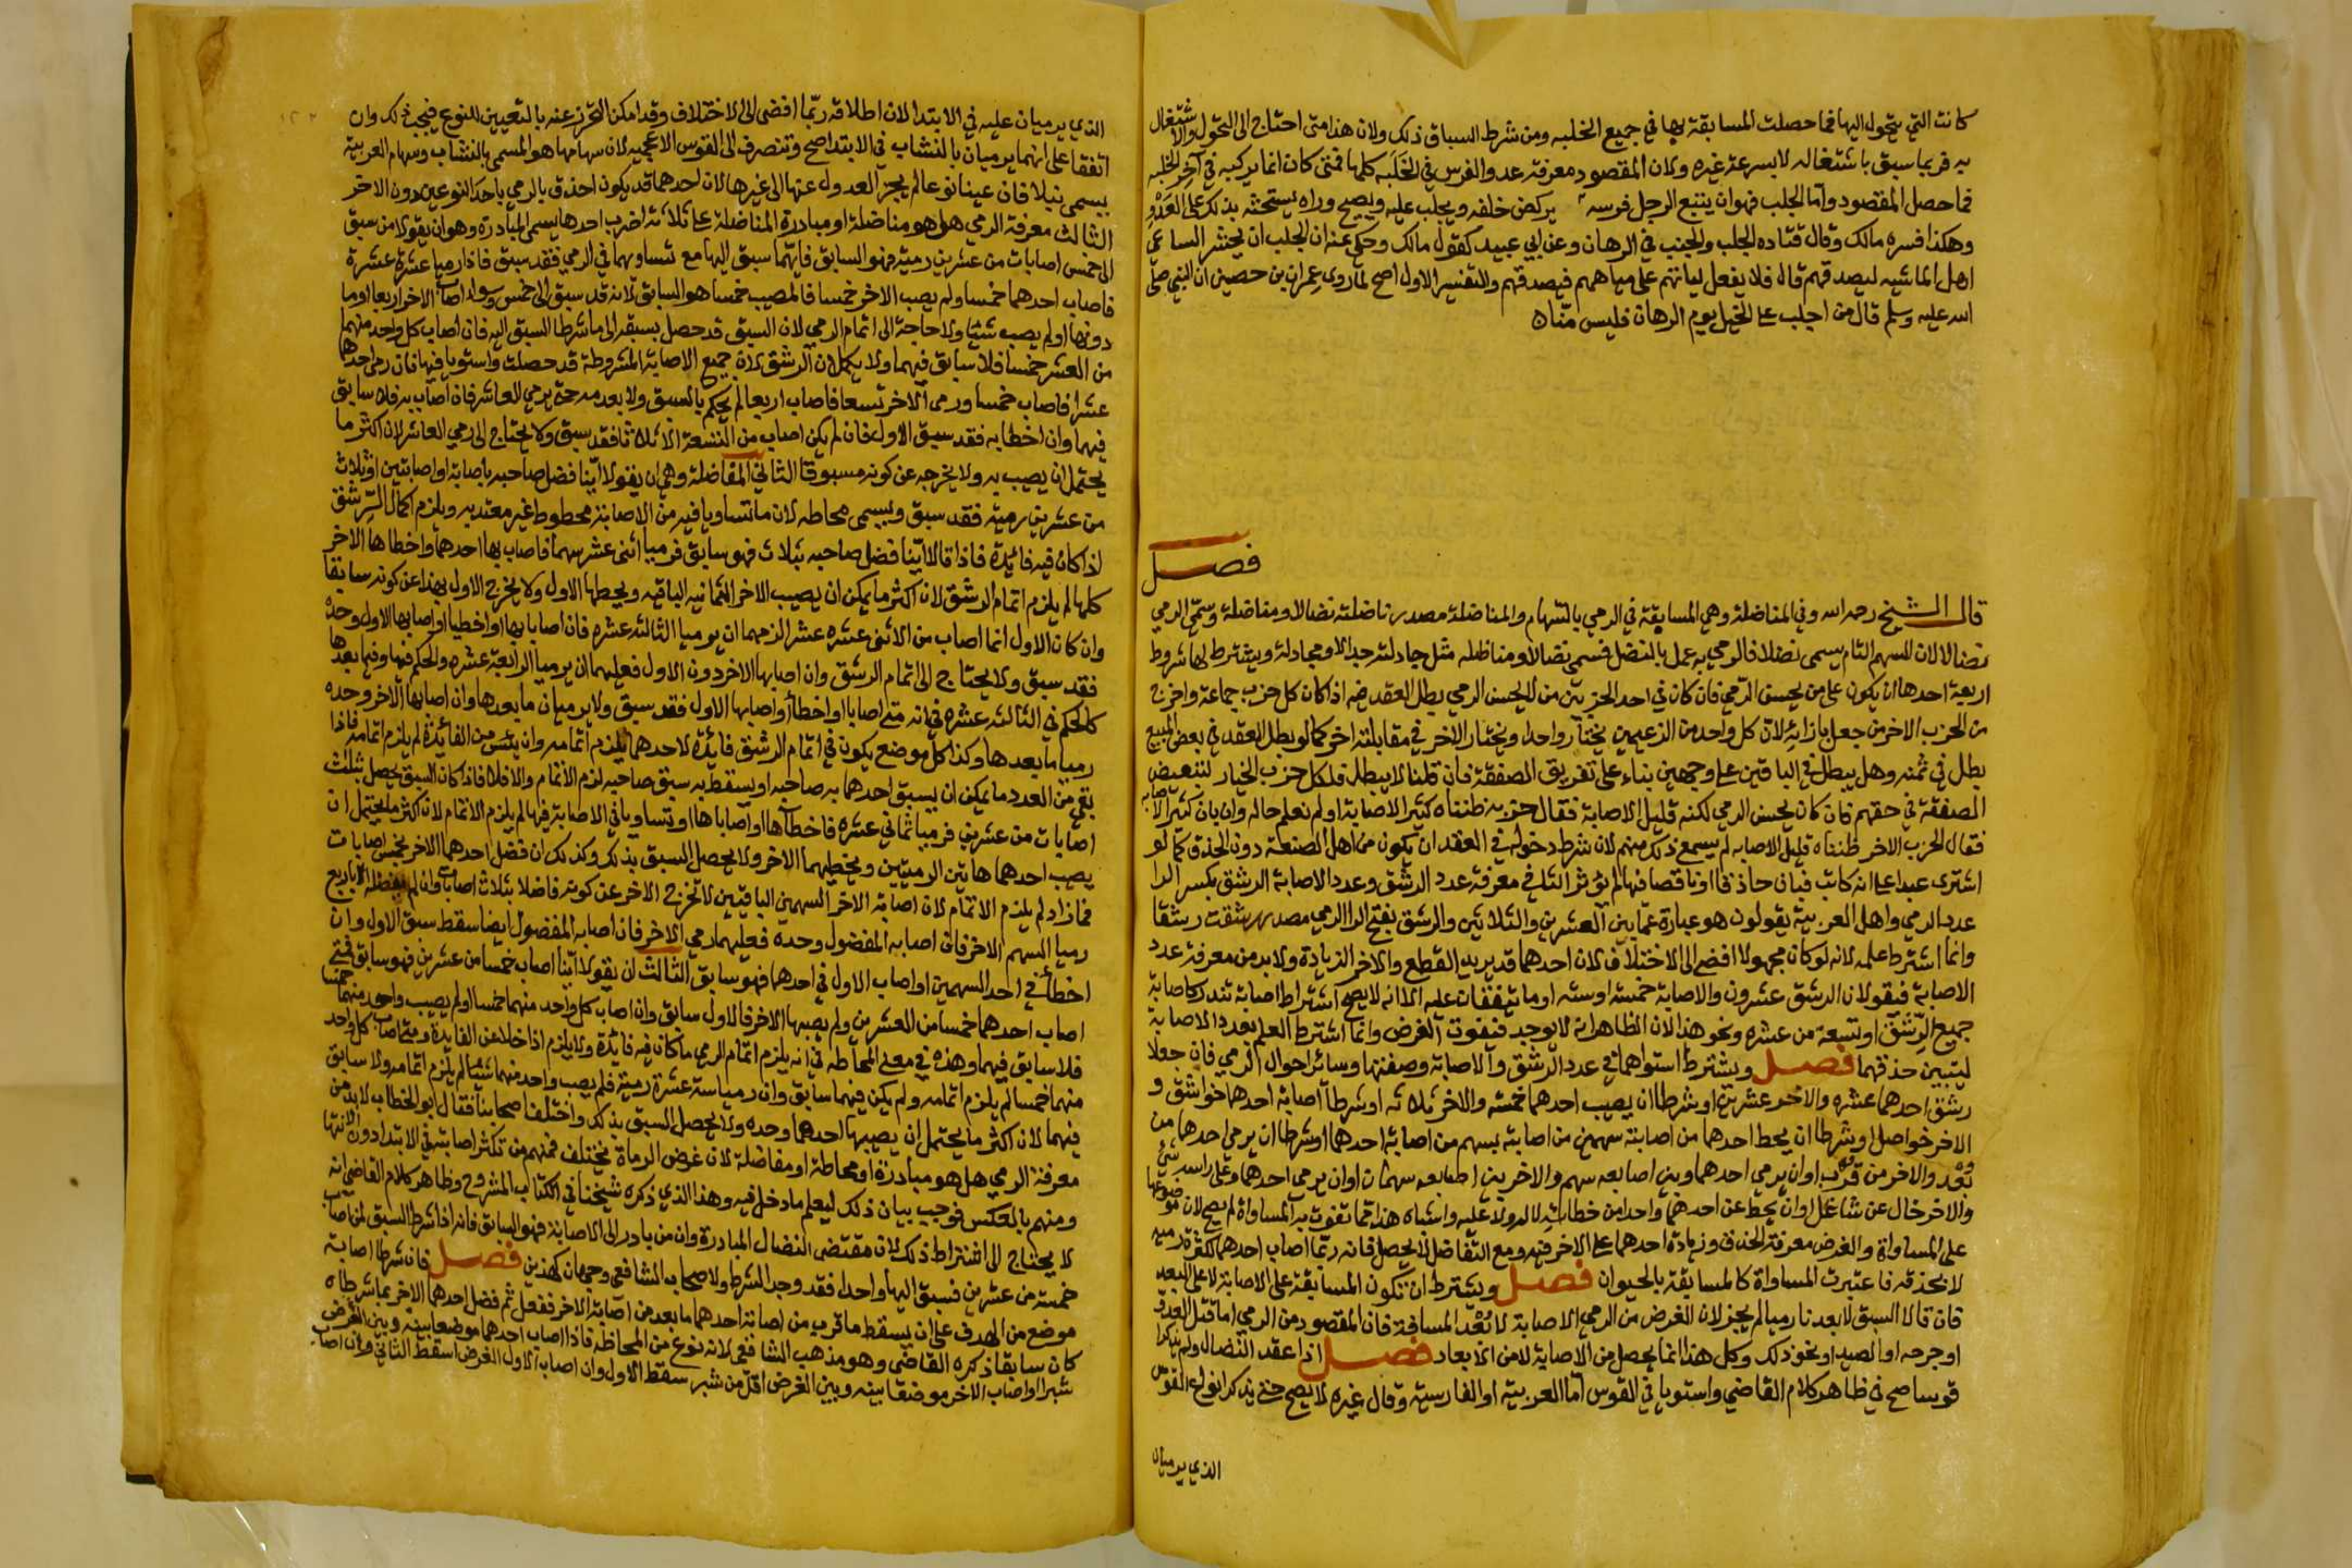 كانت التي يتحول اليها فما حصلت المسابقة بها في جميع الحلبه ومن شرط السباق ذلك ولان هذا متى احتاج الى التحول والاشتغال
به فربما سبق باشتغاله لا بسرعة غيره ولان المقصود معرفة عدو الفرس في الحلبه كلها فمتى كان انما يركبه في آخر الحلبه
فما حصل المقصود واما الجلب فهو ان يتبع الرجل فرسه يركض خلفه ويجلب عليه ويصيح وراه يستحثه بذلك على العدو
وهكذا فسره مالك وقال قتاده الجلب والجنب في الرهان وعن ابي عبيد كقول مالك وحكي عنه ان الجلب ان يحشر الساعي
اهل الماشيه ليصدقهم قال فلا يفعل لياتهم على مياههم فيصدقهم والتفسير الاول اصح لما روى عمران بن حصين ان النبي صلى
الله عليه وسلم قال من اجلب على الخيل يوم الرهان فليس منا
فصل
قال الشيخ رحمه الله وفي المناضلة وهي المسابقة في الرمي بالسهام والمناضلة مصدر ناضلته نضالا ومناضلة وسمي الرمي
نضالا لان السهم التام يسمى نضلا فالرمي به عمل بالنضل فسمي نضالا ومناضله مثل جادلته جدالا ومجادلة ويشترط لها شروط
اربعة احدها ان يكون على من يحسن الرمي فان كان في احد الحزبين من لا يحسن الرمي بطل العقد فيه اذا كان كل حزب جماعة واخرج
من الحزب الاخر من جعل بازائه لان كل واحد من الزعيمين يختار واحدا ويختار الاخر في مقابلته اخر كما لو بطل العقد في بعض المبيع
بطل في ثمنه وهل يبطل في الباقين على وجهين بناء على تفريق الصفقة فان قلنا لا يبطل فلكل حزب الخيار لتبعيض
الصفقة في حقهم فان كان يحسن الرمي لكنه قليل الاصابة فقال حزبه ظنناه كثير الاصابة او لم نعلم حاله وان بان كثير الاصابه
فقال الحزب الاخر ظنناه قليل الاصابه لم يسمع ذلك منهم لان شرط دخوله في العقد ان يكون من اهل الصنعة دون الحذق كما لو
اشترى عبدا على انه كاتب فبان حاذقا او ناقصا فيها لم يؤثر الثاني معرفة عدد الرشق وعدد الاصابة الرشق بكسر الرا
عدد الرمي واهل العربية يقولون هو عبارة عما بين العشرين والثلاثين والرشق بفتح الرا الرمي مصدر رشقت رشقا
وانما اشترط علمه لانه لو كان مجهولا افضى الى الاختلاف لان احدهما قد يريد القطع والاخر الزيادة ولا بد من معرفة عدد
الاصابة فيقولان الرشق عشرون والاصابة خمسة او سته او ما يتفقان عليه الا انه لا يصح اشتراط اصابة تندر كاصابة
جميع الرشق او تسعة من عشره ونحو هذا لان الظاهر انه لا يوجد فيفوت الغرض وانما اشترط العلم بعدد الاصابة
ليتبين حذقهما فصل ويشترط استواهما في عدد الرشق والاصابة وصفتها وسائر احوال الرمي فان جعلا
رشق احدهما عشره والاخر عشرين او شرطا ان يصيب احدهما خمسة والاخر ثلاثه او شرطا اصابة احدهما خواسق و
الاخر خواصل او شرطا ان يحط احدهما من اصابته سهمين من اصابته بسهم من اصابة احدهما او شرطا ان يرمي احدهما من
بعد والاخر من قرب او ان يرمي احدهما وبين اصابعه سهم والاخر بين اصابعه سهمان او ان يرمي احدهما وعلى راسه شي
والاخر خال عن شاغل او ان يحط عن احدهما واحدا من خطائه لا له ولا عليه واشباه هذا مما تفوت به المساواة لم يصح لان موضوعها
على المساواة والغرض معرفة الحذق وزيادة احدهما على الاخر فيه ومع التفاضل لا يحصل فانه ربما اصاب احدهما لكثرة رميه
لا بحذقه فاعتبرت المساواة كالمسابقة بالحيوان فصل ويشترط ان تكون المسابقة على الاصابة لا على البعد
فان قالا السبق لابعدنا رميا لم يجز لان الغرض من الرمي الاصابة لا بعد المسافة فان المقصود من الرمي اما قتل العدو
او جرحه او الصيد او نحو ذلك وكل هذا انما يحصل من الاصابة لا من الابعاد فصل اذا عقد النضال ولم يذكرا
قوسا صح في ظاهر كلام القاضي واستويا في القوس اما العربية او الفارسية وقال غيره لا يصح حتى يذكرا نوع القوس
الذي يرميان
الذي يرميان عليه في الابتدا لان اطلاقه ربما افضى الى الاختلاف وقد امكن التحرز عنه بالتعيين للنوع فيجب ذلك وان
اتفقا على انهما يرميان بالنشاب في الابتدا صح وتنصرف الى القوس الاعجميه لان سهامها هو المسمى بالنشاب وسهام العربية
يسمى نبلا فان عينا نوعا لم يجز العدول عنها الى غيرها لان احدهما قد يكون احذق بالرمي باحد النوعين دون الاخر
الثالث معرفة الرمي هل هو مناضلة او مبادرة المناضلة على ثلاثة اضرب احدها يسمى المبادرة وهو ان يقولا من سبق
الى خمس اصابات من عشرين رمية فهو السابق فايهما سبق اليها مع تساويهما في الرمي فقد سبق فاذا رميا عشرة عشرة
فاصاب احدهما خمسا ولم يصب الاخر خمسا فالمصيب خمسا هو السابق لانه قد سبق الى خمس وسوا اصاب الاخر اربعا او ما
دونها او لم يصب شيئا ولا حاجة الى اتمام الرمي لان السبق قد حصل بسبقه الى ما شرطا السبق اليه فان اصاب كل واحد منهما
من العشر خمسا فلا سابق فيهما ولا يكملان الرشق لان جميع الاصابة المشروطة قد حصلت واستويا فيها فان رمى احدهما
عشرا فاصاب خمسا ورمى الاخر تسعا فاصاب اربعا لم يحكم بالسبق ولا بعدمه حتى يرمي العاشر فان اصاب به فلا سابق
فيهما وان اخطا به فقد سبق الاول فان لم يكن اصاب من التسعة الا ثلاثا فقد سبق ولا يحتاج الى رمي العاشر لان اكثر ما
يحتمل ان يصيب به ولا يخرجه عن كونه مسبوقا الثاني المفاضلة وهي ان يقولا اينا فضل صاحبه باصابة او اصابتين او ثلاث
من عشرين رمية فقد سبق ويسمى محاطه لان ما تساويا فيه من الاصابة محطوط غير معتد به ويلزم اكمال الرشق
اذا كان فيه فائدة فاذا قالا اينا فضل صاحبه بثلاث فهو سابق فرميا اثنى عشر سهما فاصاب بها احدهما واخطاها الاخر
كلها لم يلزم اتمام الرشق لان اكثر ما يمكن ان يصيب الاخر الثمانيه الباقيه ويخطها الاول ولا يخرج الاول بهذا عن كونه سابقا
وان كان الاول انما اصاب من الاثنى عشره عشر الزمهما ان يرميا الثالثه عشره فان اصابا بها او اخطيا او اصابها الاول وحده
فقد سبق ولا يحتاج الى اتمام الرشق وان اصابها الاخر دون الاول فعليهما ان يرميا الرابعة عشره والحكم فيها وفيما بعدها
كالحكم في الثالثه عشره في انه متى اصابا او اخطأ او اصابها الاول فقد سبق ولا يرميان ما بعدها وان اصابها الاخر وحده
رميا ما بعدها وكذا كل موضع يكون في اتمام الرشق فائدة لاحدهما يلزم اتمامه وان يئس من الفائدة لم يلزم اتمامه فاذا
بقي من العدد ما يمكن ان يسبق احدهما به صاحبه او يسقط به سبق صاحبه لزم الاتمام والا فلا فاذا كان السبق يحصل بثلث
اصابات من عشرين فرميا ثماني عشره فاخطآها او اصاباها او تساويا في الاصابة فيها لم يلزم الاتمام لان اكثر ما يحتمل ان
يصيب احدهما هاتين الرميتين ويخطيهما الاخر ولا يحصل السبق بذلك وكذلك ان فضل احدهما الاخر بخمس اصابات
فما زاد لم يلزم الاتمام لان اصابة الاخر السهمين الباقيين لا تخرج الاخر عن كونه فاضلا بثلاث اصابات وان لم يفضله الا باربع
رميا السهم الاخر فان اصابه المفضول وحده فعليهما رمي الاخر فان اصابه المفضول ايضا سقط سبق الاول وان
اخطأ في احد السهمين او اصاب الاول في احدهما فهو سابق الثالث ان يقولا اينا اصاب خمسا من عشرين فهو سابق فمتى
اصاب احدهما خمسا من العشرين ولم يصبها الاخر فالاول سابق وان اصاب كل واحد منهما خمسا او لم يصب واحد منهما خمسا
فلا سابق فيهما وهذه في معنى المحاطه في انه يلزم اتمام الرمي ما كان فيه فائدة ولا يلزم اذا خلا عن الفايدة ومتى اصاب كل واحد
منهما خمسا لم يلزم اتمامه ولم يكن فيهما سابق وان رميا ستة عشرة رمية فلم يصب واحد منهما شيئا لم يلزم اتمامه ولا سابق
فيهما لان اكثر ما يحتمل ان يصيبها احدهما وحده ولا يحصل السبق بذلك واختلف اصحابنا فقال ابو الخطاب لا بد من
معرفة الرمي هل هو مبادرة او محاطة او مفاضلة لان غرض الرماة يختلف فمنهم من تكثر اصابته في الابتدا دون الانتها
ومنهم بالعكس فوجب بيان ذلك ليعلم ما دخل فيه وهذا الذي ذكره شيخنا في الكتاب المشروح وظاهر كلام القاضي انه
لا يحتاج الى اشتراط ذلك لان مقتضى النضال المبادرة وان من بادر الى الاصابة فهو السابق فانه اذا شرط السبق لمن اصاب
خمسة من عشرين فسبق اليها واحد فقد وجد الشرط ولاصحاب الشافعي وجهان كهذين فصل فان شرطا اصابة
موضع من الهدف على ان يسقط ما قرب من اصابة احدهما ما بعد من اصابة الاخر ففعل ثم فضل احدهما الاخر بما شرطاه
كان سابقا ذكره القاضي وهو مذهب الشافعي لانه نوع من المحاطه فاذا اصاب احدهما موضعا بينه وبين الغرض
شبرا واصاب الاخر موضعا بينه وبين الغرض اقل من شبر سقط الاول وان اصاب الاول الغرض اسقط الثاني وان اصاب